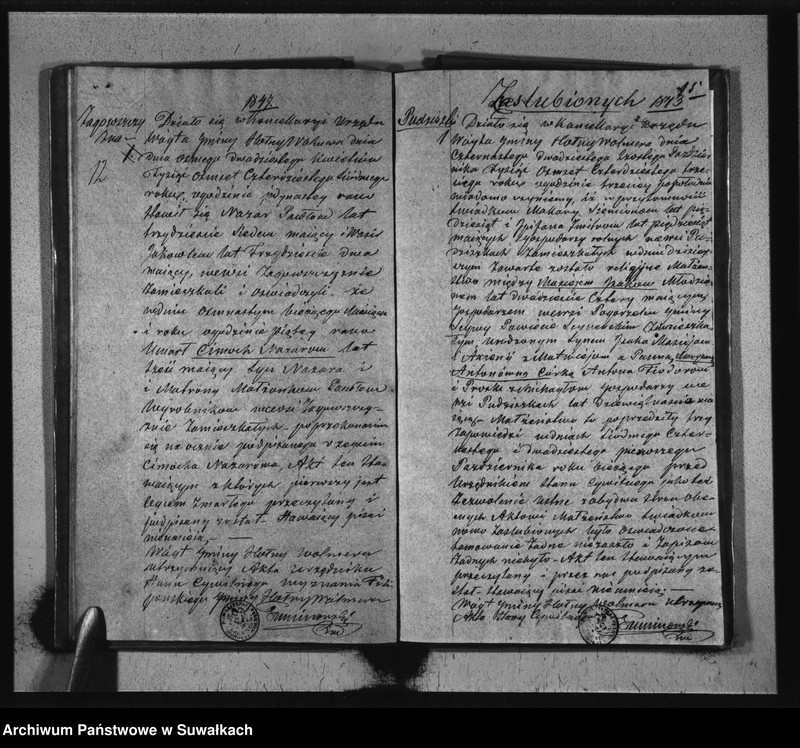 1843
Zagowszczy
zna
12
Działo się w Kancellaryi Urzędu
Wójta Gminy Hołny Wolmera dnia
dnia ósmego dwudziestego Kwietnia
Tysiąc Ośmset Czterdziestego trzeciego
roku, o godzinie jedynastej rano
Stawił się Nazar Pawłow lat
trzydzieści siedem mający i Wasil
Jakowlew lat trzydzieści dwa
mający, we wsi
zamieszkali i oświadczyli, że
w dniu bieżącego Miesiąca
i roku o godzinie piątej rano
Umarł Cimoch Nazarow lat
trzy mający syn Nazara i
i Matrony Małżonków Pawłow
Wyrobników we wsi
Zamieszkałych. po przekonaniu
się naocznie podpisanego o zejściu
Cimocha Nazarowa, Akt ten sta-
wającym z których pierwszy jest
Ojcem Zmarłego przeczytany i
podpisany został. Stawający pisać
nie umieją.
Wójt Gminy Hołny Wolmera
utrzymujący Akta Urzędnika
Stanu Cywilnego wyznania Fili-
pońskiego Gminy Hołny Wolmera
Zaślubionych 1843
15
Pudziszki
1
Działo się w Kancellaryi Urzędu
Wójta Gminy Hołny Wolmera dnia
Czternastego dwudziestego szóstego Paździer-
nika Tysiąc Ośmset Czterdziestego trze-
ciego roku, o godzinie trzeciej po południu
wiadomo czyniemy, iż w przytomności
świadków Makary lat pię-
dziesiąt i lat pięćdziesiąt
mających Gospodarzy rolnych we wsi Pu-
dziszkach Zamieszkałych w dniu dzisiej-
szym zawarte zostało religijne Małżeń-
stwo między Maciejem Jzakow Młodzia-
nem lat dwadzieścia Cztery mającym
Gospodarzem we wsi Pogorzelec Gminy
Sejwy Powiecie Sejneńskim Zamieszka-
łym, urodzonym synem Jzaka
i Axenii z a Panną
Antonówną Córką Antona Fiodorow
i Proski z Gospodarzy we
wsi Pudziszkach lat Dziewiętnaście ma-
jącą. Małżeństwo to poprzedziły trzy
zapowiedzi w dniach siódmego Czter-
nastego i dwudziestego pierwszego
Października roku bieżącego przed
Urzędnikiem Stanu Cywilnego jako też
zezwolenie ustne
Aktowi Małżeństwa świadków
nowo zaślubionych było oświadczone
tamowanie żadne nie zaszło i
żadnych niebyło. Akt ten stawającym
przeczytany i przez nas podpisany zo-
stał. Stawający pisać nie umieją.
Wójt Gminy Hołny Wolmera utrzymujący
Akta Stanu Cywilnego
Archiwum Państwowe w Suwałkach